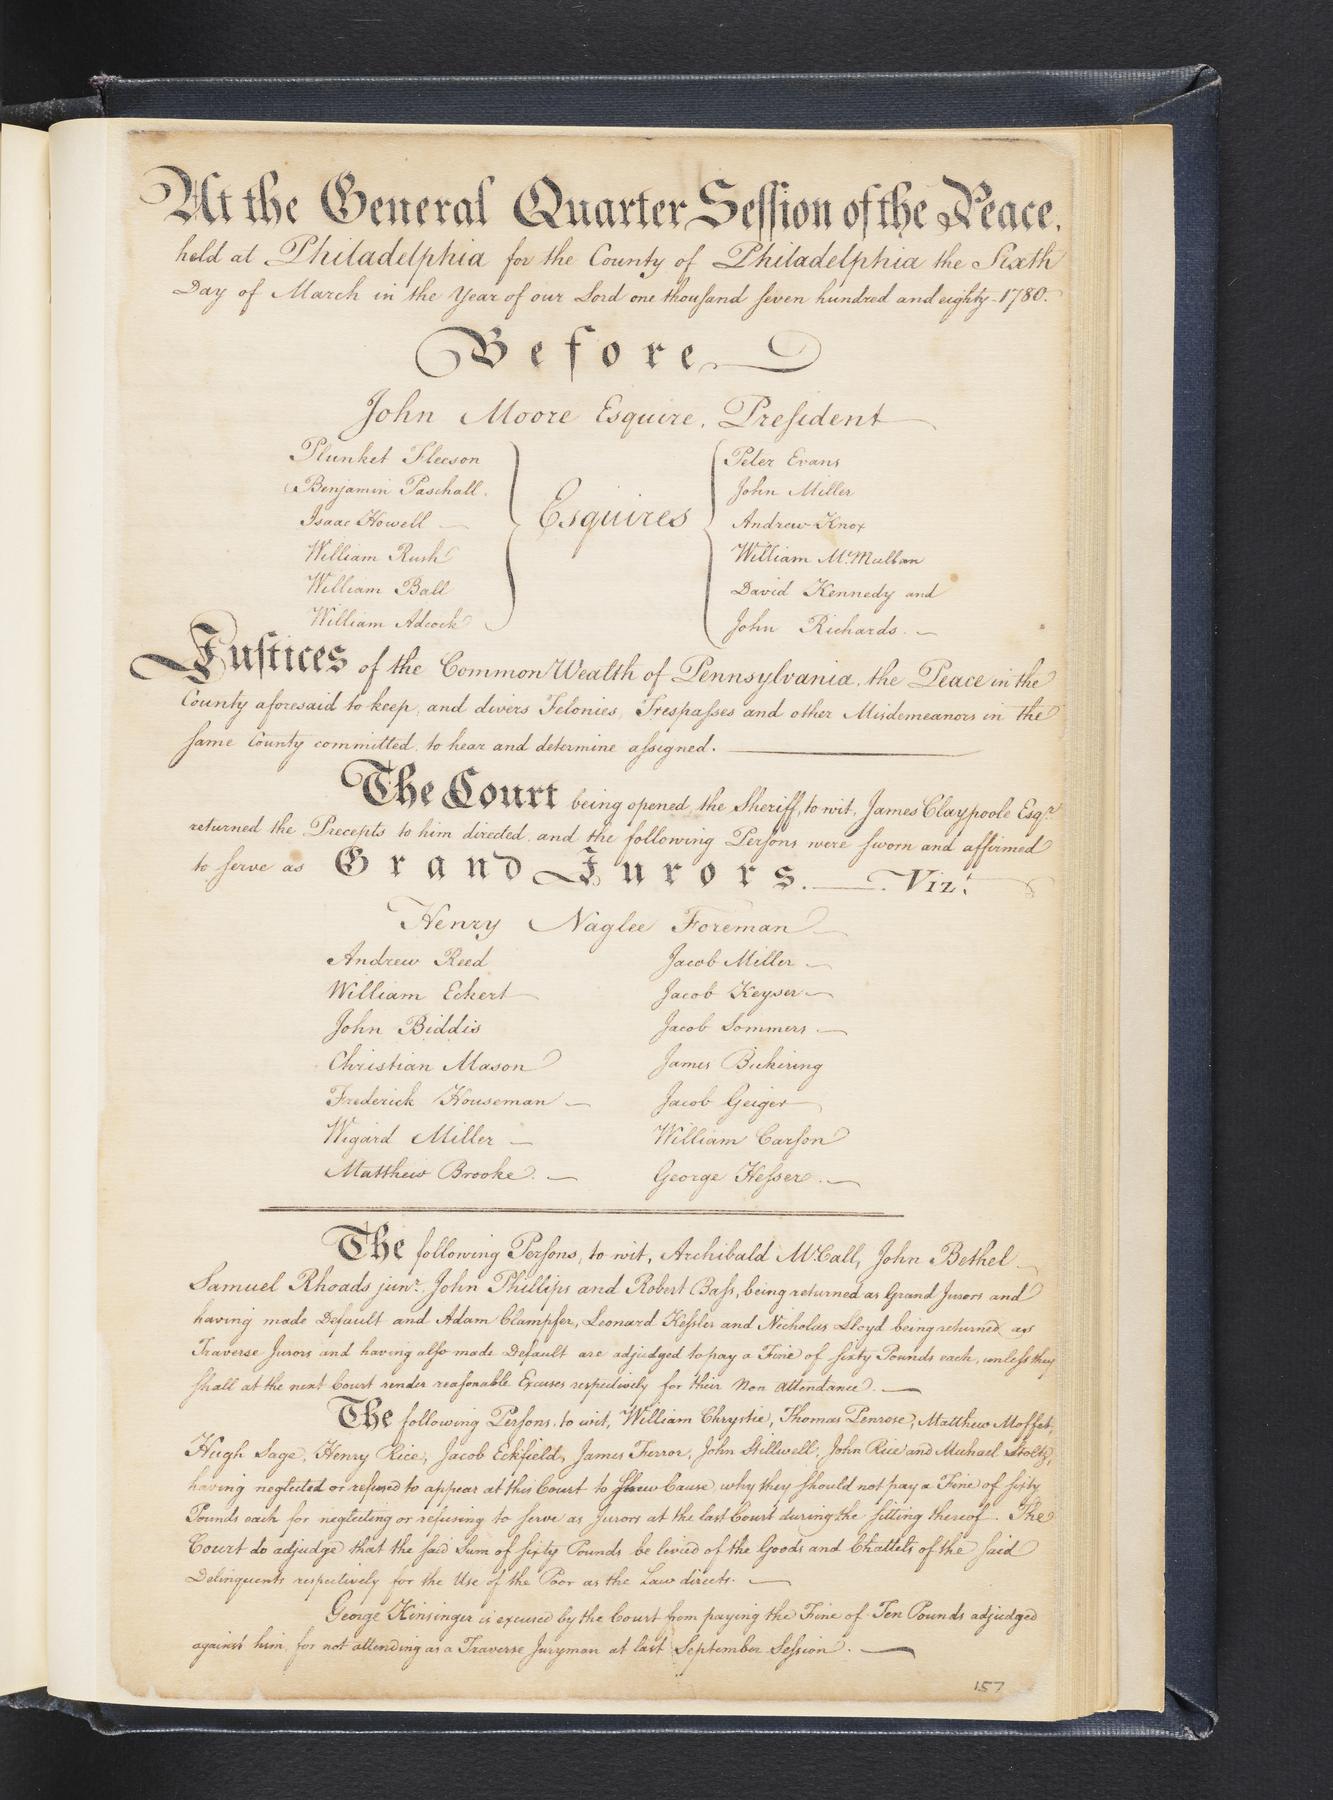 At the General Quarter Session of the Peace,
held at Philadelphia for the County of Philadelphia the Sixth
Day of March in the Year of our Lord one thousand seven hundred and eighty-1780.
Before
John Moore Esquire, President
Plunket Fleeson
Benjamin Paschall.
Isaac Howell
William Rush
William Ball
William Adcock
Esquires
Peter Evans
John Miller
Andrew Knox
William McMullan
David Kennedy and
John Richards.
Justices of the CommonWealth of Pennsylvania, the Peace in the
County aforesaid to keep, and divers Felonies, Trespasses and other Misdemeanors in the
same County committed, to hear and determine assigned.
The Court being opened, the Sheriff, to wit, James Claypoole Esqr.
returned the Precepts to him directed, and the following Persons were sworn and affirmed
to serve as Grand Jurors. Vizt.
Henry Naglee Foreman
Andrew Reed
William Eckert
John Biddis
Christian Mason
Frederick Houseman
Wigard Miller
Matthew Brooke.
Jacob Miller
Jacob Keyser
Jacob Sommers
James Bickering
Jacob Geiger
William Carson
George Hesser.
The following Persons, to wit, Archibald McCall, John Bethel
Samuel Rhoads junr. John Phillips and Robert Bass, being returned as Grand Jurors and
having made Default and Adam Clampfer, Leonard Kessler and Nicholas Lloyd being returned as
Traverse Jurors and having also made Default are adjudged to pay a Fine of sixty Pounds each, unless they
shall at the next Court render reasonable Excuses respectively for their Non attendance.
The following Persons, to wit, William Chrystie, Thomas Penrose, Matthew Moffet,
Hugh Sage, Henry Rice, Jacob Eckfield, James Turror, John Stillwell, John Rice and Michael Stoltz,
having neglected or refused to appear at this Court to shew Cause, why they should not pay a Fine of sixty
Pounds each for neglecting or refusing to serve as Jurors at the last Court during the sitting thereof. The
Court do adjudge that the said Sum of sixty Pounds be levied of the Goods and Chattels of the said
Delinquents respectively for the Use of the Poor as the Law directs.
George Kinsinger is excused by the Court from paying the Fine of Ten Pounds adjudged
against him, for not attending as a Traverse Juryman at last September Session.
157